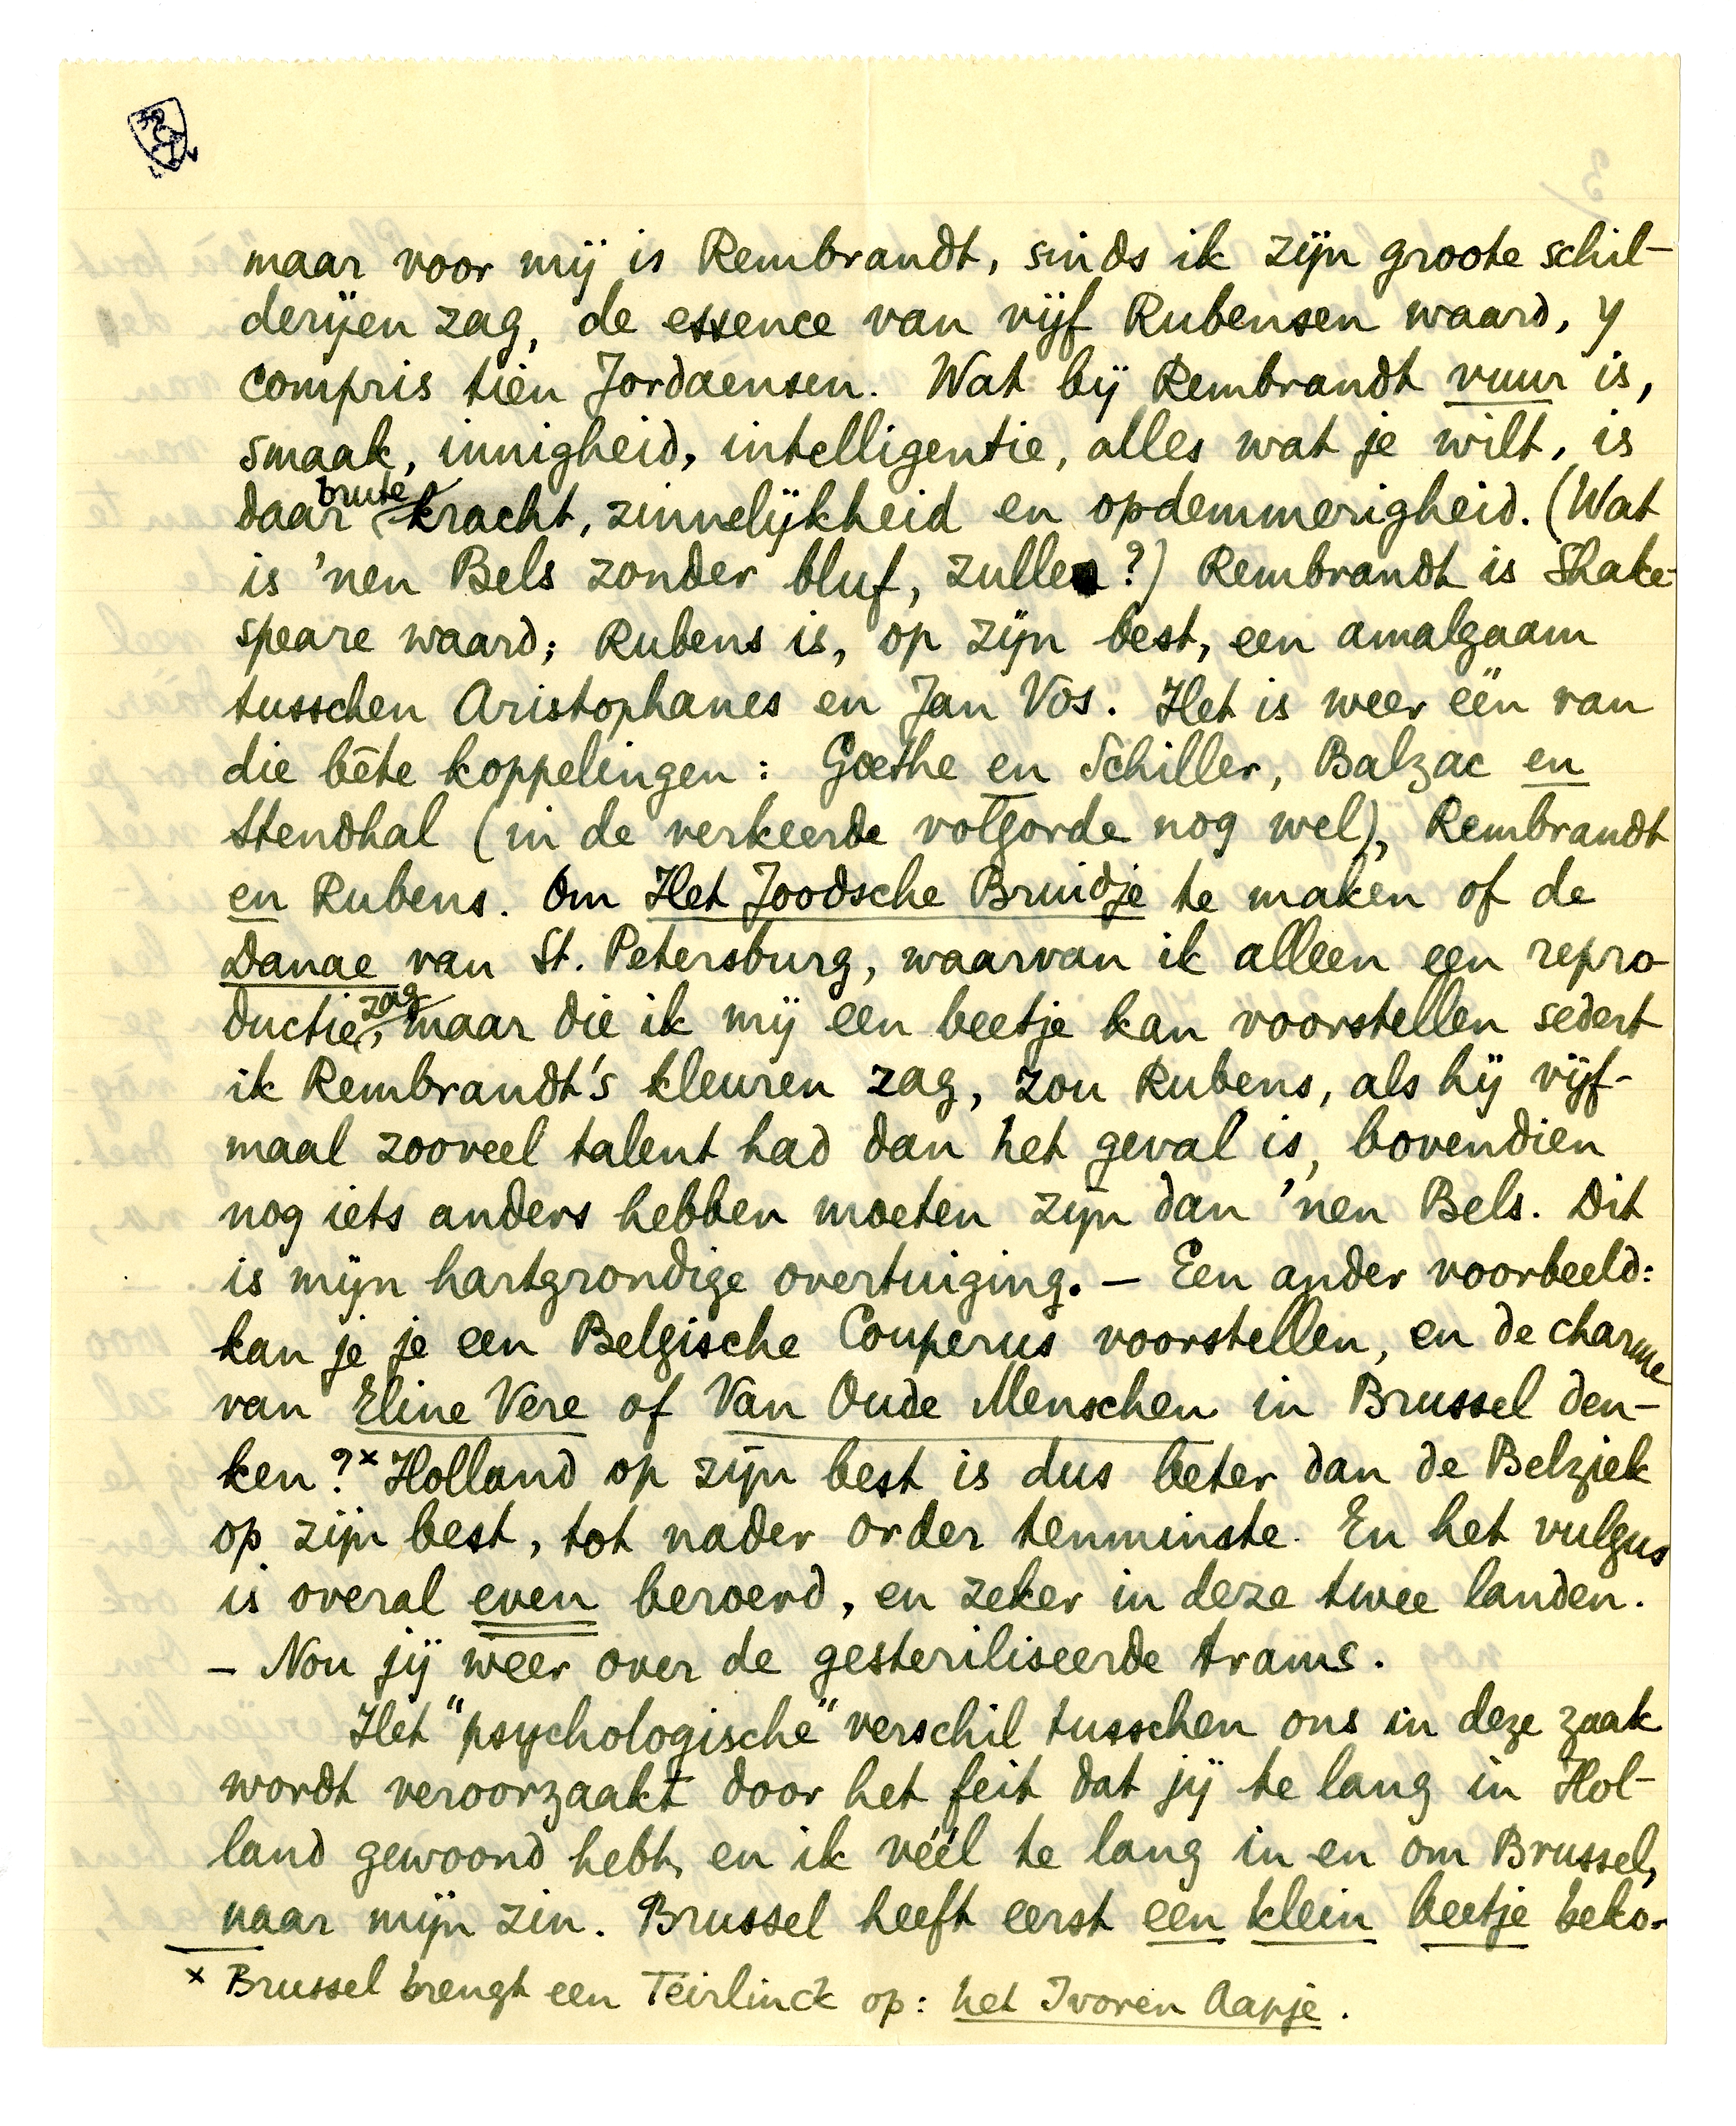 maar voor mij is Rembrandt, sinds ik zijn groote schil-
derijen zag, de essence van vijf Rubensen waard, y
compris tien Jordaensen. Wat bij Rembrandt vuur is,
smaak, innigheid, intelligentie, alles wat je wilt, is
daar brute kracht, zinnelijkheid en opdemmerigheid. (Wat
is 'nen Bels zonder bluf, zulle?) Rembrandt is Shake-
speare waard; Rubens is, op zijn best, een amalgaam
tusschen Aristophanes en Jan Vos. Het is weer één van
die bête koppelingen: Goethe en Schiller, Balzac en
Stendhal (in de verkeerde volgorde nog wel), Rembrandt
en Rubens. Om Het Joodsche Bruidje te maken of de
Danae van St. Petersburg, waarvan ik alleen een repro-
ductie zag, maar die ik mij een beetje kan voorstellen sedert
ik Rembrandt's kleuren zag, zou Rubens, als hij vijf-
maal zooveel talent had dan het geval is, bovendien
nog iets anders hebben moeten zijn dan 'nen Bels. Dit
is mijn hartgrondige overtuiging. — Een ander voorbeeld:
kan je je een Belgische Couperus voorstellen, en de charme
van Eline Vere of Van Oude Menschen in Brussel den-
ken?x Holland op zijn best is dus beter dan de Belziek
op zijn best, tot nader order tenminste. En het vulgus
is overal even beroerd, en zeker in deze twee landen.
— Nou jij weer over de gesteriliseerde trams.
Het "psychologische" verschil tusschen ons in deze zaak
wordt veroorzaakt door het feit dat jij te lang in Hol-
land gewoond hebt, en ik véél te lang in en om Brussel,
naar mijn zin. Brussel heeft eerst een klein beetje beko-
x Brussel brengt een Teirlinck op: het Ivoren Aapje.